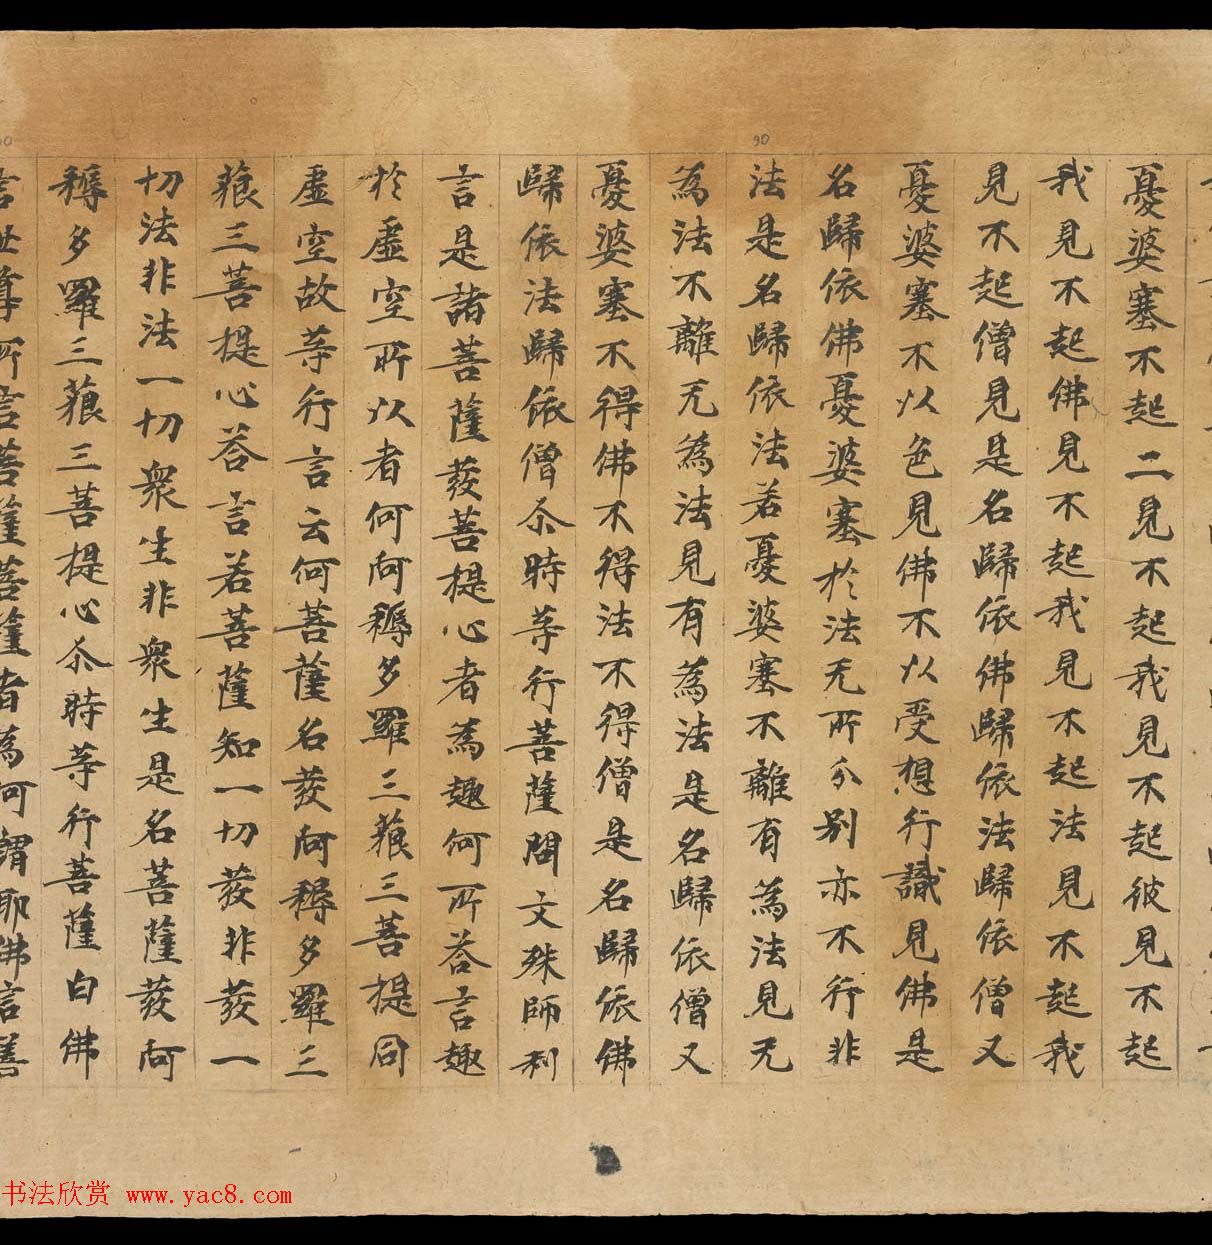 憂婆塞不起二見不起我見不起彼見不起
我見不起佛見不起我見不起法見不起我
見不起僧見是名歸依佛歸依法歸依僧又
憂婆塞不以色見佛不以受想行識見佛是
名歸依佛憂婆塞於法无所分別亦不行非
法是名歸依法若憂婆塞不離有為法見无
為法不離无為法見有為法是名歸依僧又
憂婆塞不得佛不得法不得僧是名歸依佛
歸依法歸依僧尒時等行菩薩問文殊師利
言是諸菩薩發菩提心者為趣何所荅言趣
於虛空所以者何阿耨多羅三藐三菩提同
虛空故等行言云何菩薩名發阿耨多羅三
藐三菩提心荅言若菩薩知一切發非發一
切法非法一切衆生非衆生是名菩薩發阿
耨多羅三藐三菩提心尒時等行菩薩白佛
言世尊所言菩薩菩薩者為何謂耶佛言善
90
书法欣赏 www.yac8.com